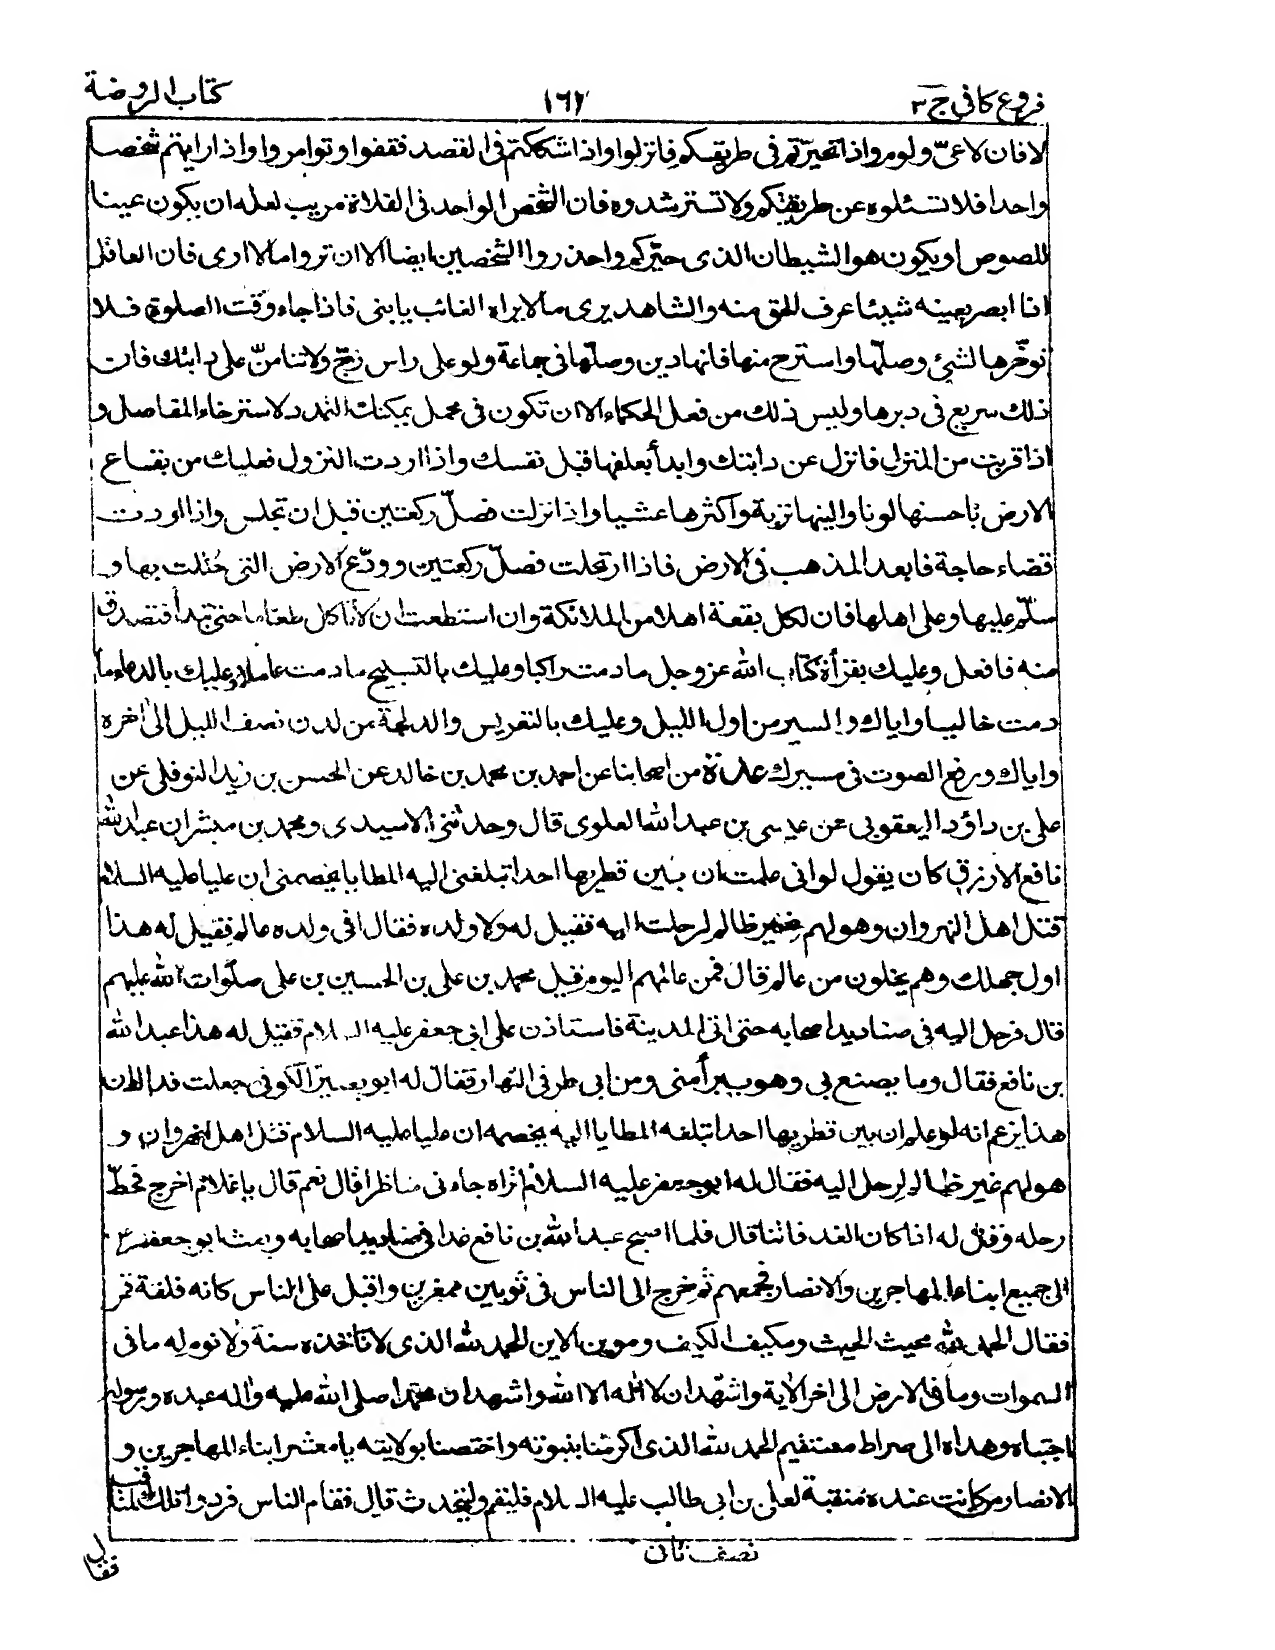 فروع كافى ج ٣ ١٦٢ كتاب الروضة
لا فان لا عىّ ولوم واذا تحيرتم فى طريقكم فانزلوا واذا شككتم فى القصد فقفوا وتوامروا واذا رايتم شخصا
واحدا فلا تسئلوه عن طريقكم ولا تسترشدوه فان الشخص الواحد فى الفلاة مريب لعله ان يكون عينا
للصوص او يكون هو الشيطان الذى حيّركم واحذروا الشخصين ايضا الا ان تروا ما لا ارى فان العاقل
اذا ابصر بعينه شيئا عرف الحق منه والشاهد يرى ما لا يراه الغائب يا بنى فاذا جاء وقت الصلوة فلا
تؤخّرها لشئ وصلّها واسترح منها فانها دين وصلّها فى جماعة ولو على راس زجّ ولا تنامنّ على دابتك فان
ذلك سريع فى دبرها وليس ذلك من فعل الحكماء الا ان تكون فى محمل يمكنك التمدد لاسترخاء المفاصل و
اذا قربت من المنزل فانزل عن دابتك وابدأ بعلفها قبل نفسك واذا اردت النزول فعليك من بقاع
الارض باحسنها لونا والينها تربة واكثرها عشبا واذا نزلت فصلّ ركعتين قبل ان تجلس واذا اردت
قضاء حاجة فابعد المذهب فى الارض فاذا ارتحلت فصلّ ركعتين وودّع الارض التى حللت بها و
سلّم عليها وعلى اهلها فان لكل بقعة اهلا من الملائكة وان استطعت ان لا تاكل طعاما حتى تبدأ فتصدق
منه فافعل وعليك بقرأة كتاب الله عز وجل ما دمت راكبا وعليك بالتسبيح ما دمت عاملا وعليك بالدعاء ما
دمت خاليا واياك والسير من اول الليل وعليك بالتعريس والدلجة من لدن نصف الليل الى اخره
واياك ورفع الصوت فى مسيرك عدة من اصحابنا عن احمد بن محمد بن خالد عن الحسن بن زيد النوفلى عن
على بن داؤد اليعقوبى عن عيسى بن عبد الله العلوى قال وحدثنى الاسيدى ومحمد بن مبشر ان عبد الله
نافع الازرق كان يقول لو انى علمت ان بين قطريها احدا تبلغنى اليه المطايا يخصمنى ان عليا عليه السلام
قتل اهل النهروان وهو لهم غير ظالم لرحلت اليه فقيل له ولا ولده فقال افى ولده عالم فقيل له هذا
اول جهلك وهم يخلون من عالم قال فمن عالمهم اليوم قيل محمد بن على بن الحسين بن على صلوات الله عليهم
قال فرحل اليه فى صناديد اصحابه حتى اتى المدينة فاستاذن على ابى جعفر عليه السلام فقيل له هذا عبد الله
بن نافع فقال وما يصنع بى وهو يبرأ منى ومن ابى طرفى النهار فقال له ابو بصير الكوفى جعلت فداك ان
هذا يزعم انه لو علم ان بين قطريها احدا تبلغه المطايا اليه يخصمه ان عليا عليه السلام قتل اهل النهروان و
هو لهم غير ظالم لرحل اليه فقال له ابو جعفر عليه السلام اتراه جاءنى مناظرا قال نعم قال يا غلام اخرج فحطّ
رحله وقل له اذا كان الغد فاتنا قال فلما اصبح عبد الله بن نافع غدا فى صناديد اصحابه وبعث ابو جعفر ع
الى جميع ابناء المهاجرين والانصار فجمعهم ثم خرج الى الناس فى ثوبين ممغرين واقبل على الناس كانه فلقة قمر
فقال الحمد لله محيث الحيث ومكيف الكيف وموين الاين الحمد لله الذى لا تاخذه سنة ولا نوم له ما فى
السموات وما فى الارض الى اخر الاية واشهد ان لا اله الا الله واشهد ان محمدا صلى الله عليه واله عبده ورسوله
اجتباه وهداه الى صراط مستقيم الحمد لله الذى اكرمنا بنبوته واختصنا بولايته يا معشر ابناء المهاجرين و
الانصار من كانت عنده منقبة لعلى بن ابى طالب عليه السلام فليقم وليتحدث قال فقام الناس فردوا تلك المناقب
نصف ثانى
فقال